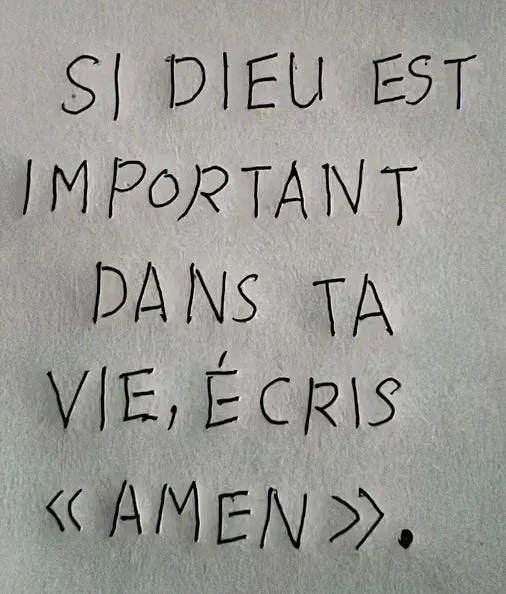 SI DIEU EST
IMPORTANT
DANS TA
VIE, ÉCRIS
« AMEN ».